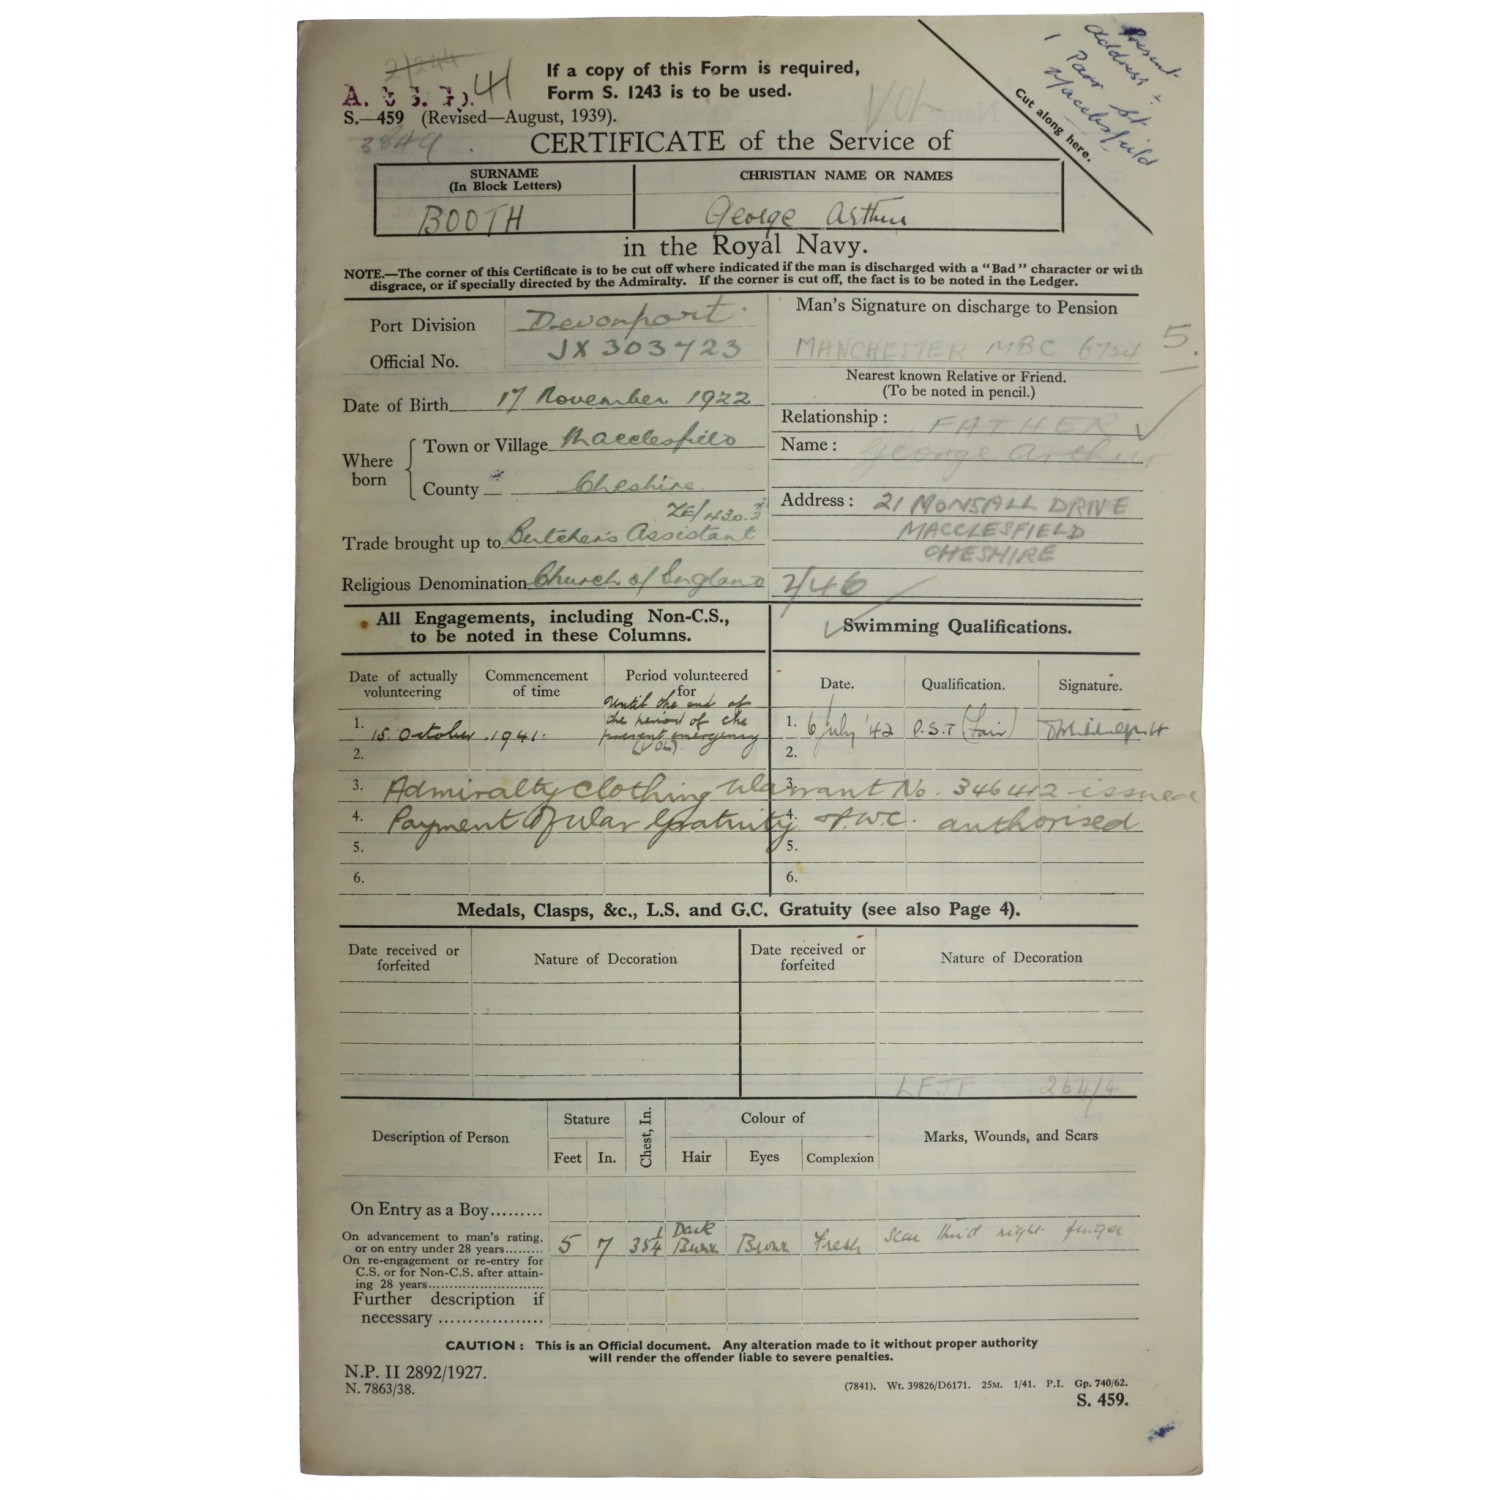 2/244
A. & S. D. 41
If a copy of this Form is required,
Form S. 1243 is to be used.
S.—459 (Revised—August, 1939).
3849.
Vol
Present
address :
1 Parr St
Macclesfield
Cut along here.
CERTIFICATE of the Service of
SURNAME
(In Block Letters)
CHRISTIAN NAME OR NAMES
BOOTH
George Arthur
in the Royal Navy.
NOTE.—The corner of this Certificate is to be cut off where indicated if the man is discharged with a "Bad" character or with
disgrace, or if specially directed by the Admiralty. If the corner is cut off, the fact is to be noted in the Ledger.
Port Division Devonport.
Official No. JX 303723
Date of Birth 17 November 1922
Where born
Town or Village Macclesfield
County Cheshire.
ZE/430.
Trade brought up to Butcher's Assistant
Religious Denomination Church of England
Man's Signature on discharge to Pension
MANCHESTER MBC 6754 5.
Nearest known Relative or Friend.
(To be noted in pencil.)
Relationship : FATHER
Name : George Arthur
Address : 21 MONSALL DRIVE
MACCLESFIELD
CHESHIRE
2/46
All Engagements, including Non-C.S.,
to be noted in these Columns.
Swimming Qualifications.
Date of actually
volunteering
Commencement
of time
Period volunteered
for
Date.
Qualification.
Signature.
1. 15 October 1941.
Until the end of
the period of the
present emergency
(Vol)
1. 6 July '42 P.S.T (Fair)
2.
2.
3. Admiralty Clothing Warrant No. 346412 issued
3.
4. Payment of War Gratuity & P.W.C. authorised
4.
5.
5.
6.
6.
Medals, Clasps, &c., L.S. and G.C. Gratuity (see also Page 4).
Date received or
forfeited
Nature of Decoration
Date received or
forfeited
Nature of Decoration
264/4
Description of Person
Stature
Feet In.
Chest, In.
Colour of
Hair Eyes Complexion
Marks, Wounds, and Scars
On Entry as a Boy.........
On advancement to man's rating,
or on entry under 28 years.........
5 7 35¼ Dark Brown Brown Fresh Scar third right finger
On re-engagement or re-entry for
C.S. or for Non-C.S. after attain-
ing 28 years...........................
Further description if
necessary ..................
CAUTION : This is an Official document. Any alteration made to it without proper authority
will render the offender liable to severe penalties.
N.P. II 2892/1927.
N. 7863/38.
(7841). Wt. 39826/D6171. 25M. 1/41. P.I. Gp. 740/62.
S. 459.